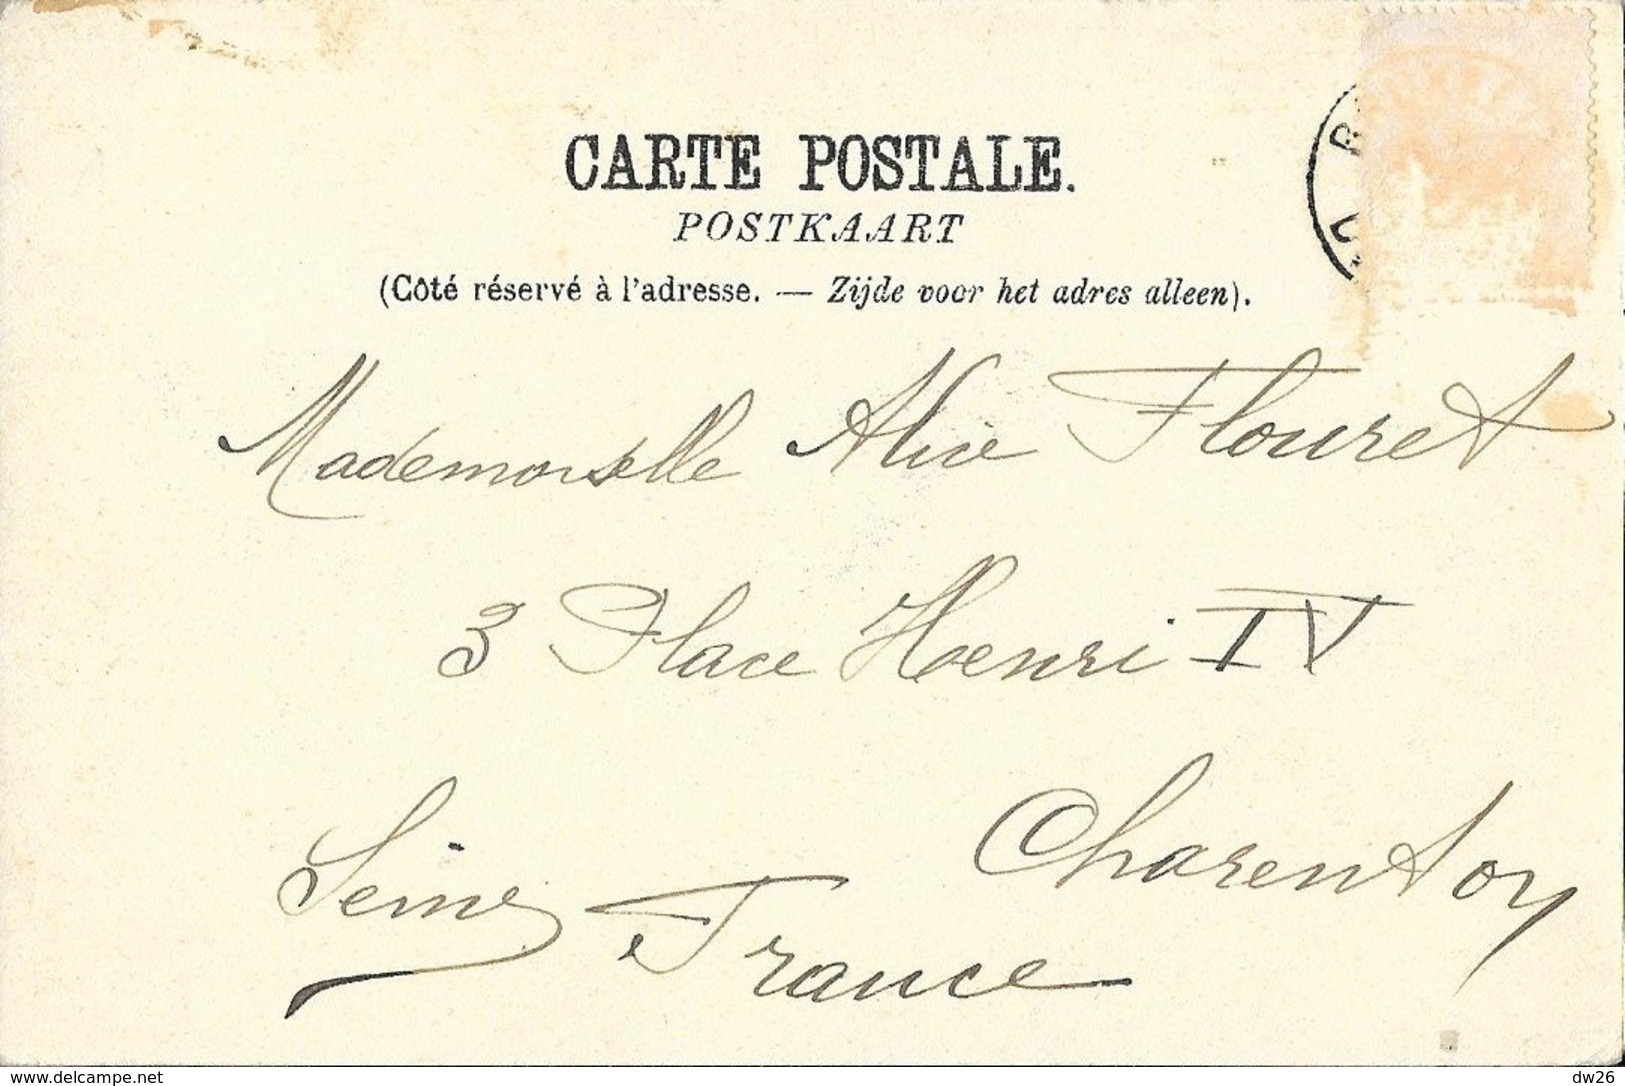 CARTE POSTALE.
POSTKAART
(Côté réservé à l'adresse. — Zijde voor het adres alleen).
Mademoiselle Alice Flouret
3 Place Henri IV
Charenton
Seine
France
www.delcampe.net
dw26